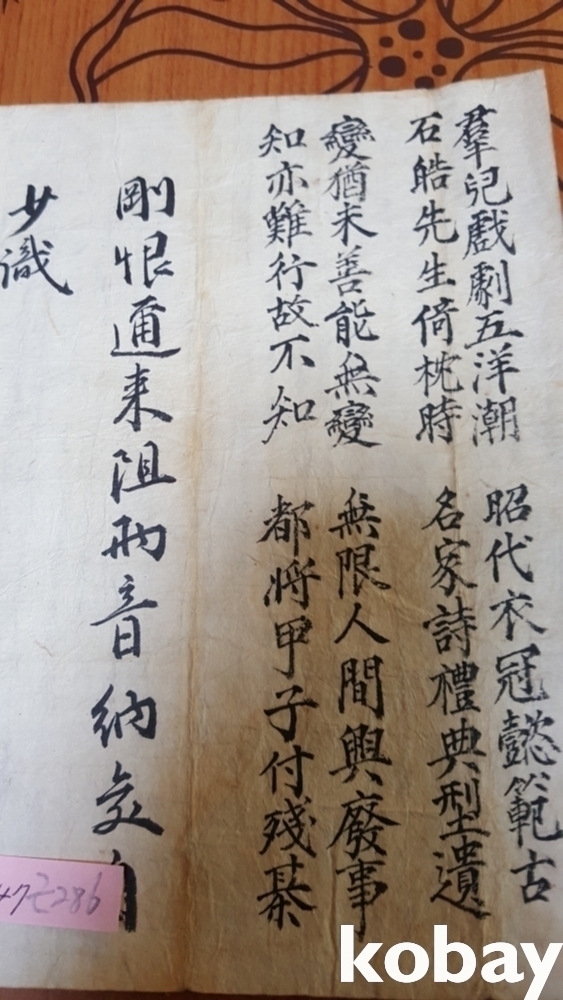 羣兒戲劇五洋潮 昭代衣冠懿範古
石皓先生倚枕時 名家詩禮典型遺
變猶未善能無變 無限人間興廢事
知亦難行故不知 都將甲子付殘棊
剛恨邇来阻兩音納交
少識
kobay